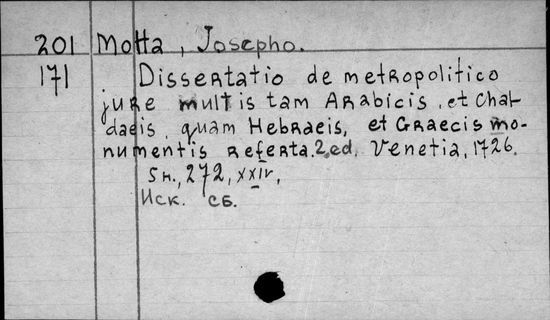 201 Motta, Josepho.
171 Dissertatio de metropolitico
jure multis tam Arabicis, et Chal-
daeis, quam Hebraeis, et Graecis mo-
numentis referta. 2.ed. Venetia, 1726.
272, XXIV,
Иск. сб.